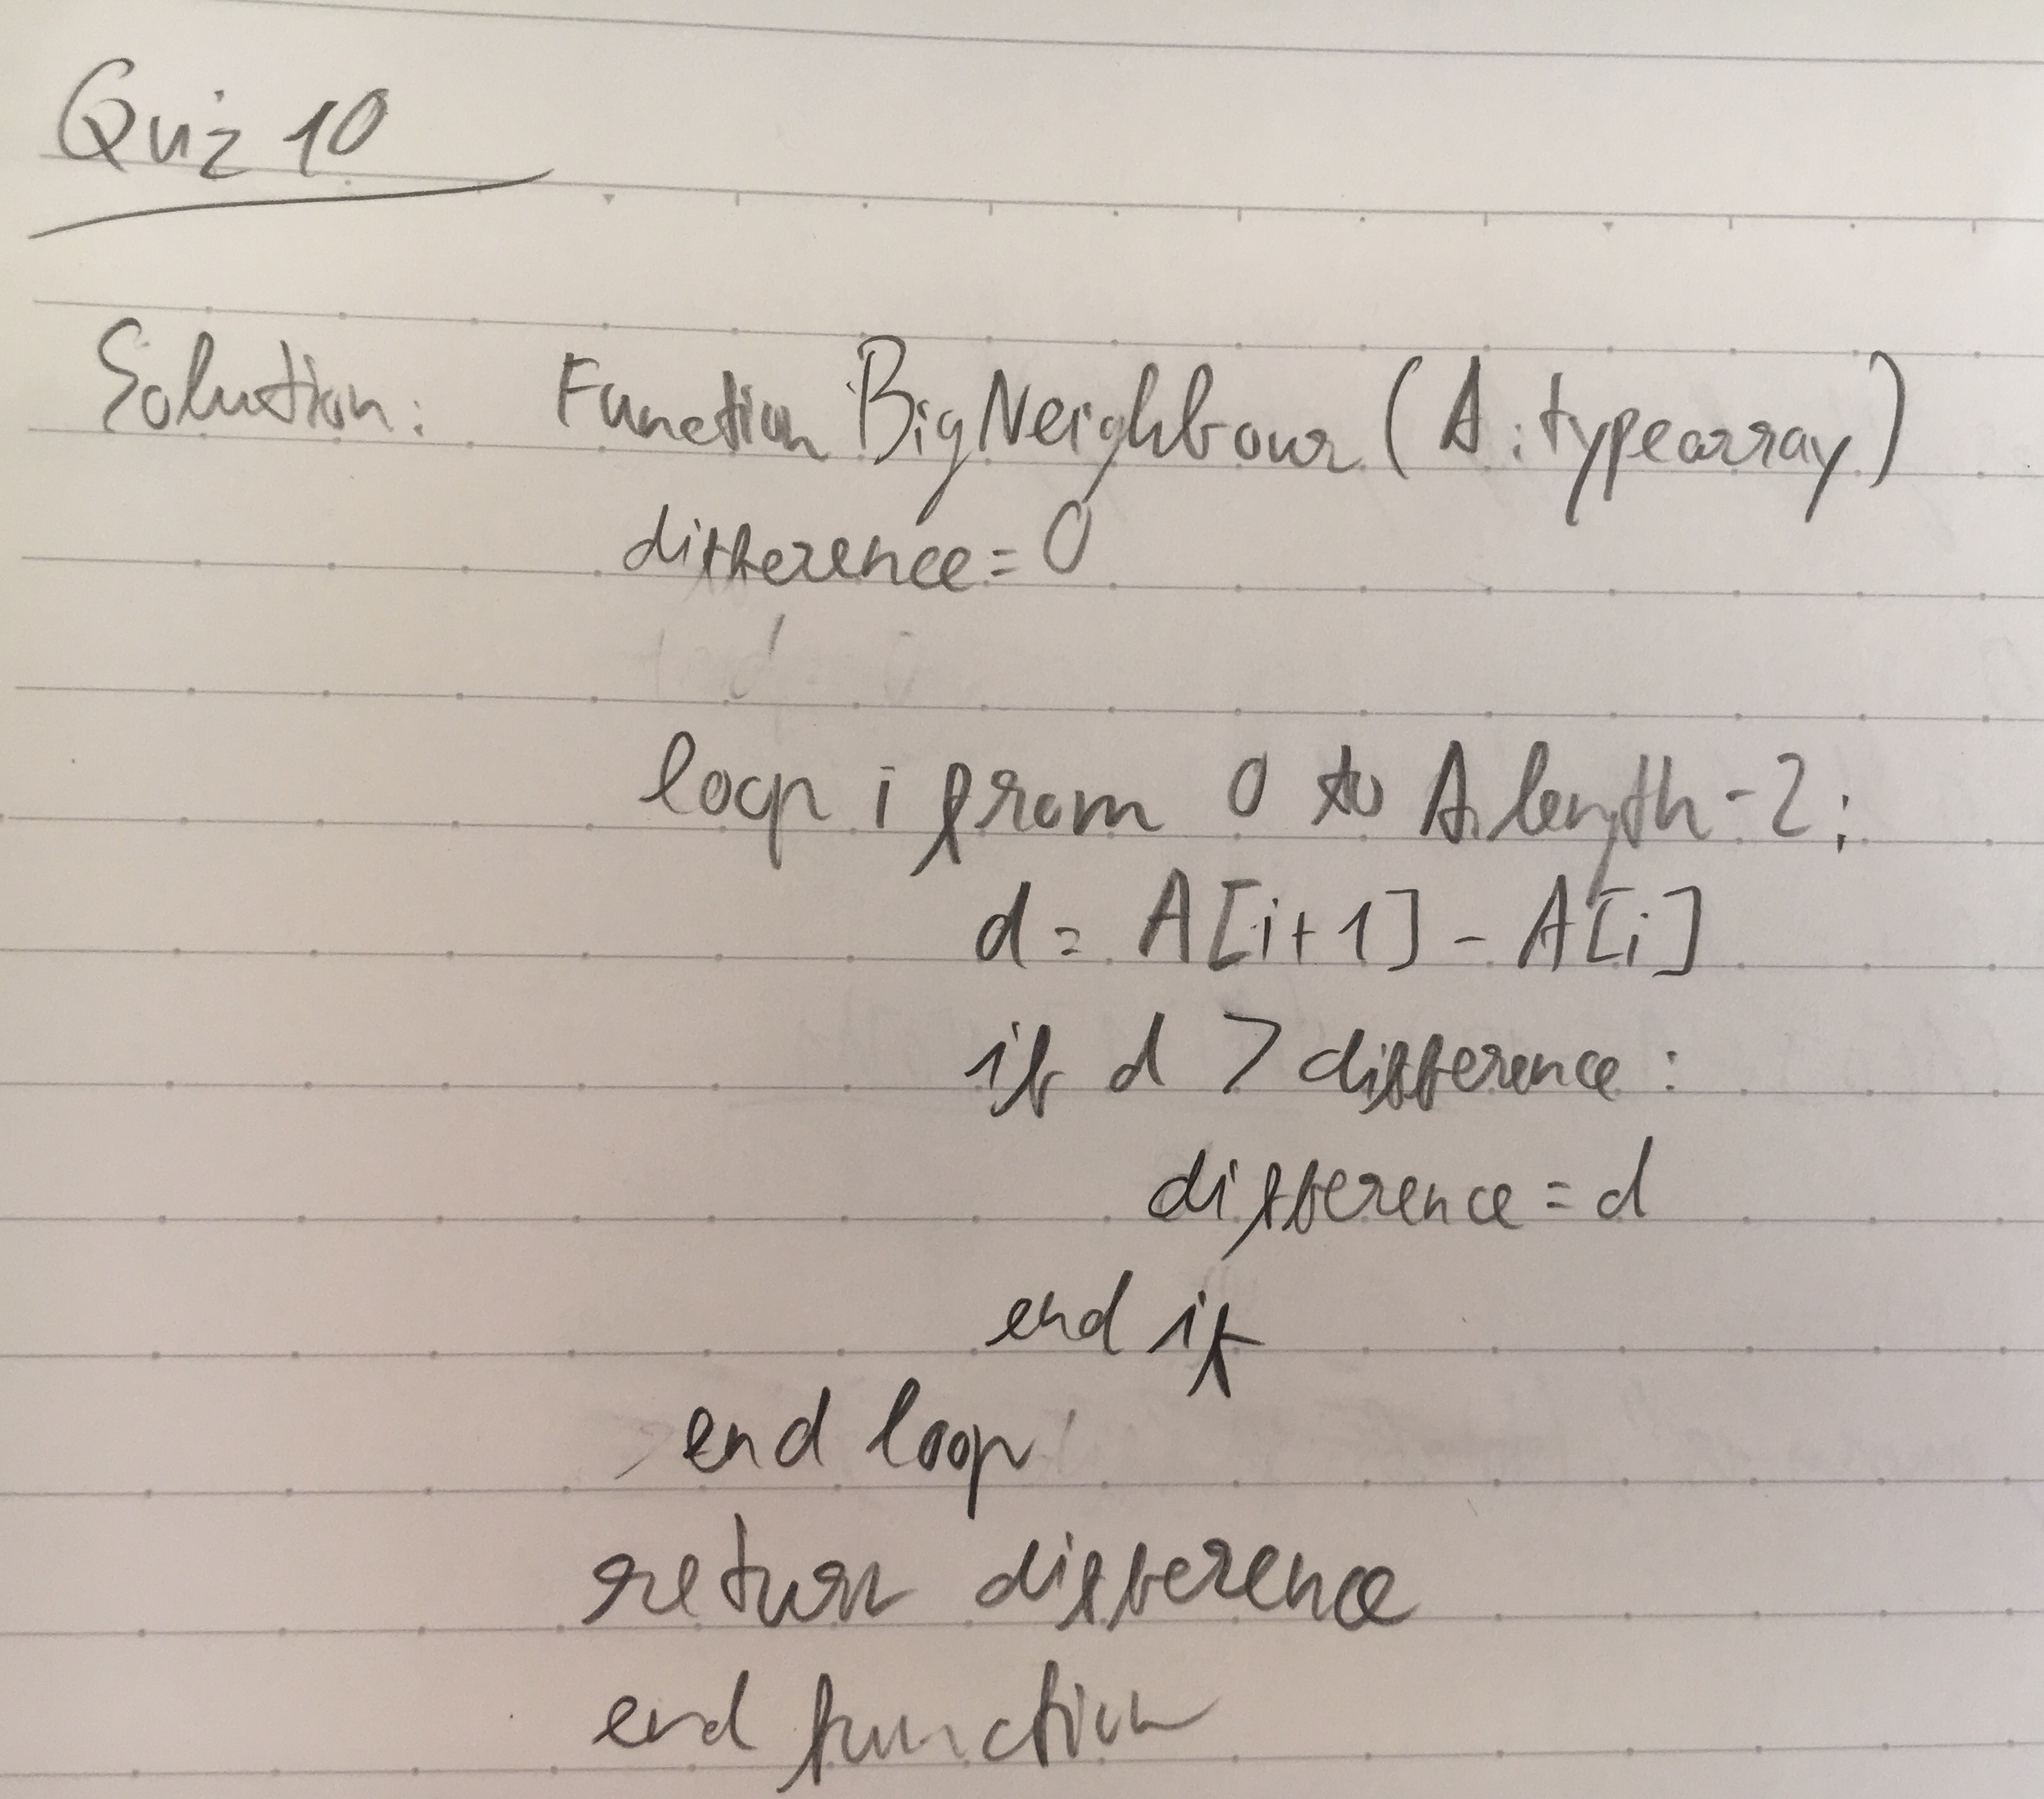 Quiz 10
Solution: Function BigNeighbour (A: typearray)
difference = 0
loop i from 0 to A.length - 2:
d = A[i+1] - A[i]
if d > difference:
difference = d
end if
end loop
return difference
end function